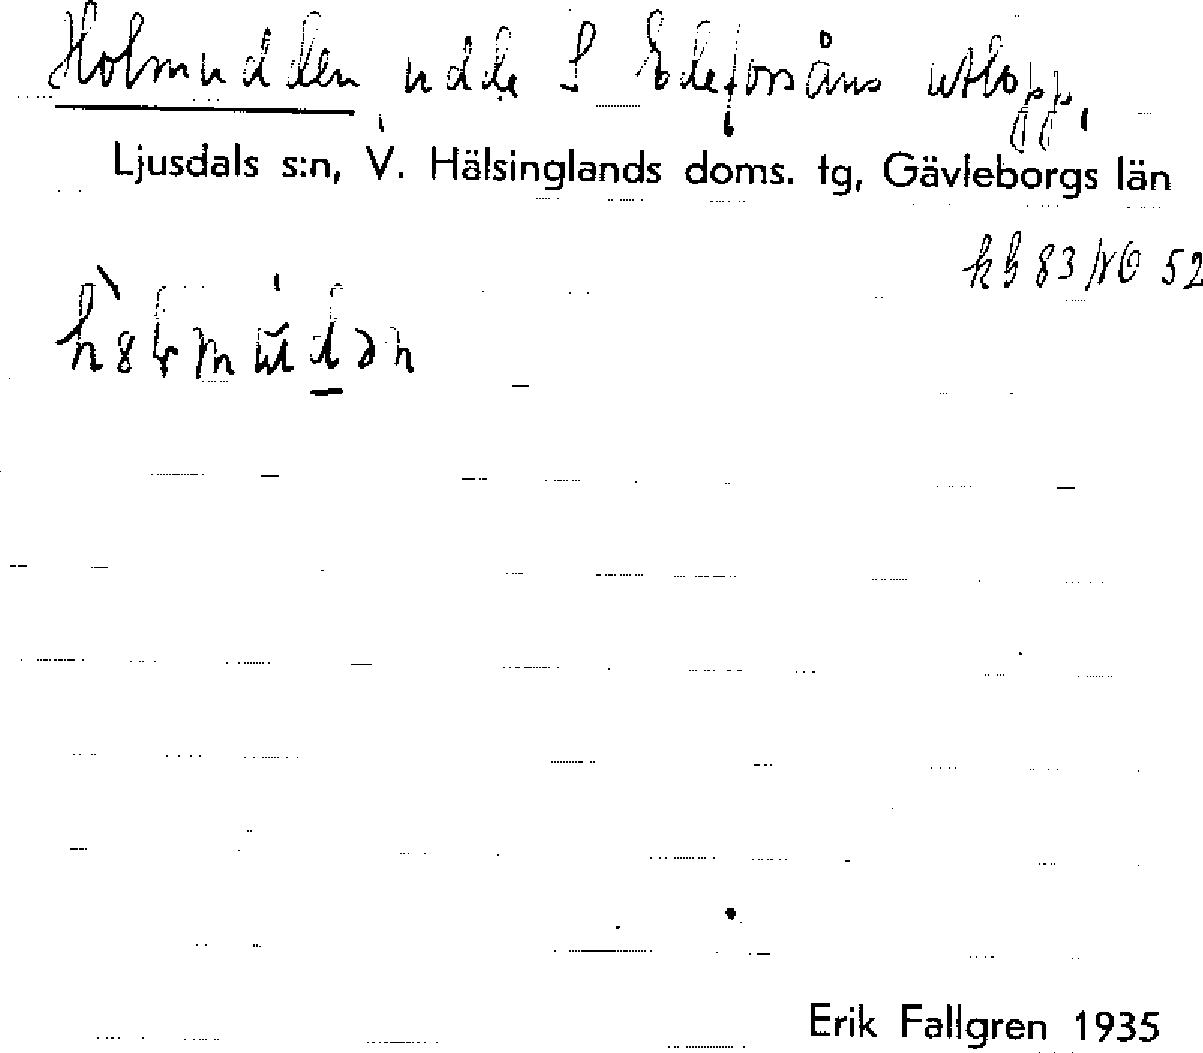 Holmudden, udde S Edeforsåns utlopp.
Ljusdals s:n, V. Hälsinglands doms. tg, Gävleborgs län
kb 83 NO 52
Erik Fallgren 1935